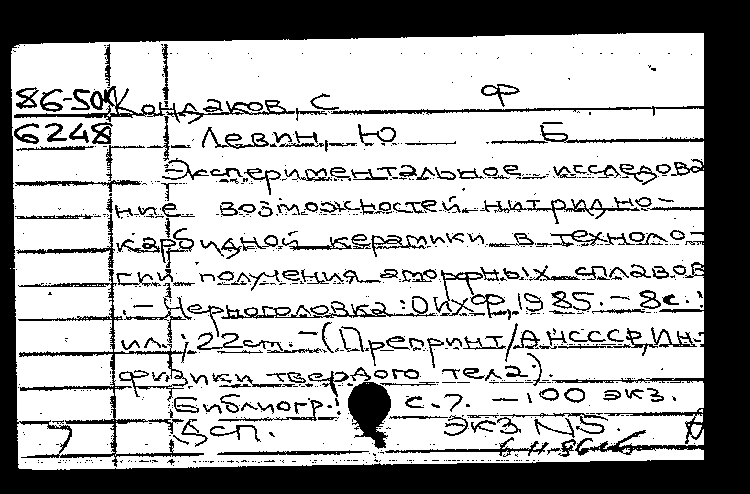 86-50 Кондаков, С Ф
6248 Левин, Ю Б
Экспериментальное исследова
ние возможностей нитридно-
карбидной керамики в техноло-
гии получения аморфных сплавов
.- Черноголовка: ОИХФ, 1985. - 8с.:
ил.; 22см. - (Препринт/АНСССР, Ин-т
физики твердого тела).
Библиогр.: с.7. - 100 экз.
Бсп. ЭКЗ N5.
6.11.86